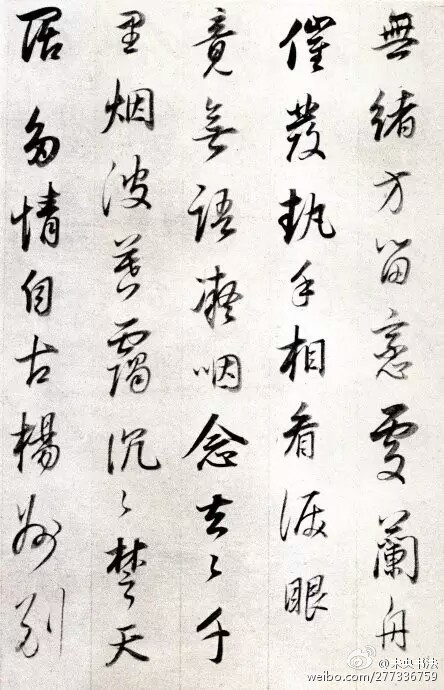 無緒方留戀處蘭舟
催發執手相看淚眼
竟無語凝咽念去〻千
里烟波暮靄沉〻楚天
闊多情自古傷離別
@未央书法
weibo.com/277336759